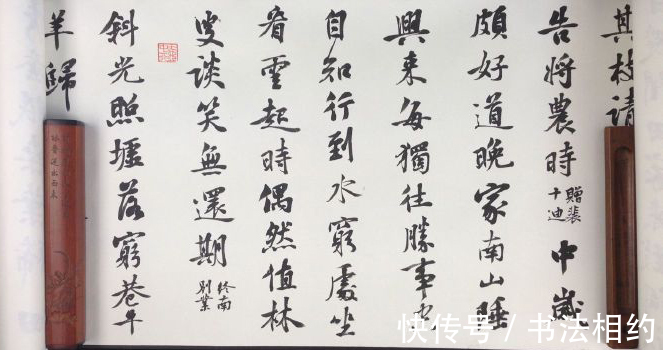 其枝請
告將農時 贈裴十迪 中歲
頗好道晚家南山陲
興來每獨往勝事空
自知行到水窮處坐
看雲起時偶然值林
叟談笑無還期 終南別業
斜光照墟落窮巷牛
羊歸
快传号 / 书法相约